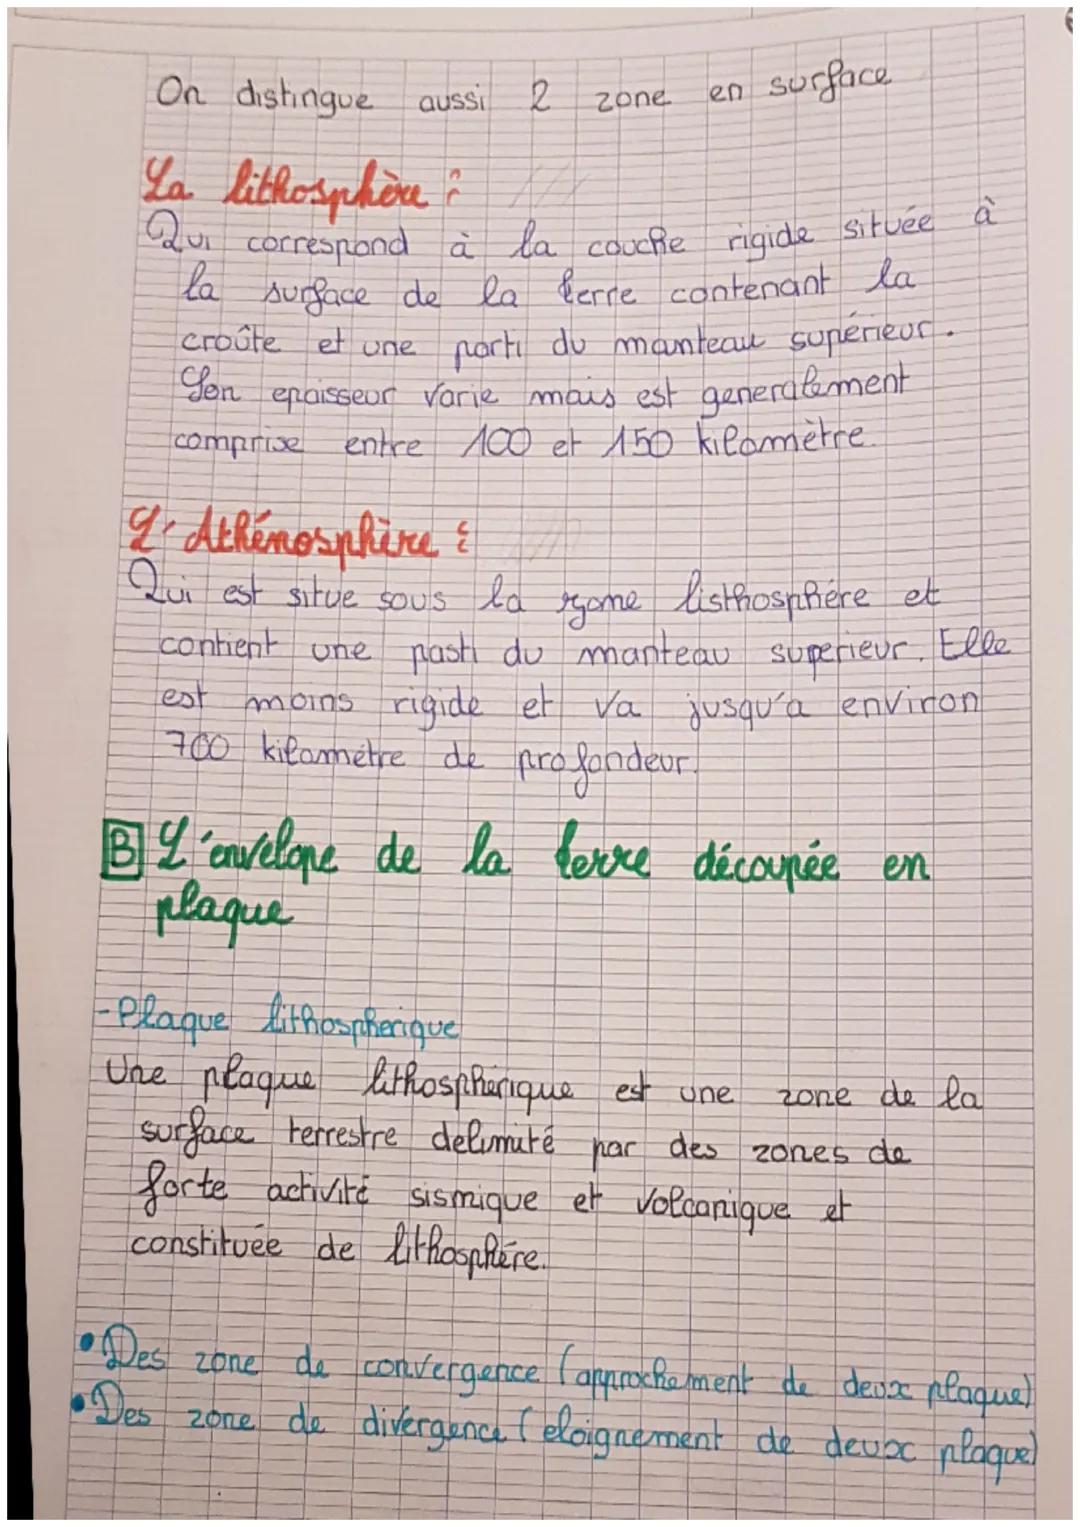 On distingue aussi 2 zone en surface
La lithosphère :
Qui correspond à la couche rigide située à
la surface de la terre contenant la
croûte et une parti du manteau supérieur.
Son epaisseur varie mais est generalement
comprise entre 100 et 150 kilomètre.
L'Athénosphère :
Qui est situe sous la zone listhosphére et
contient une parti du manteau superieur. Elle
est moins rigide et va jusqu'a environ
700 kilométre de profondeur.
B L'envelope de la terre découpée en
plaque
- Plaque lithospherique
Une plaque lithosphérique est une zone de la
surface terrestre delimité par des zones de
forte activité sismique et volcanique et
constituée de lithosphère.
• Des zone de convergence (approchement de deux plaque)
• Des zone de divergence (eloignement de deux plaque)